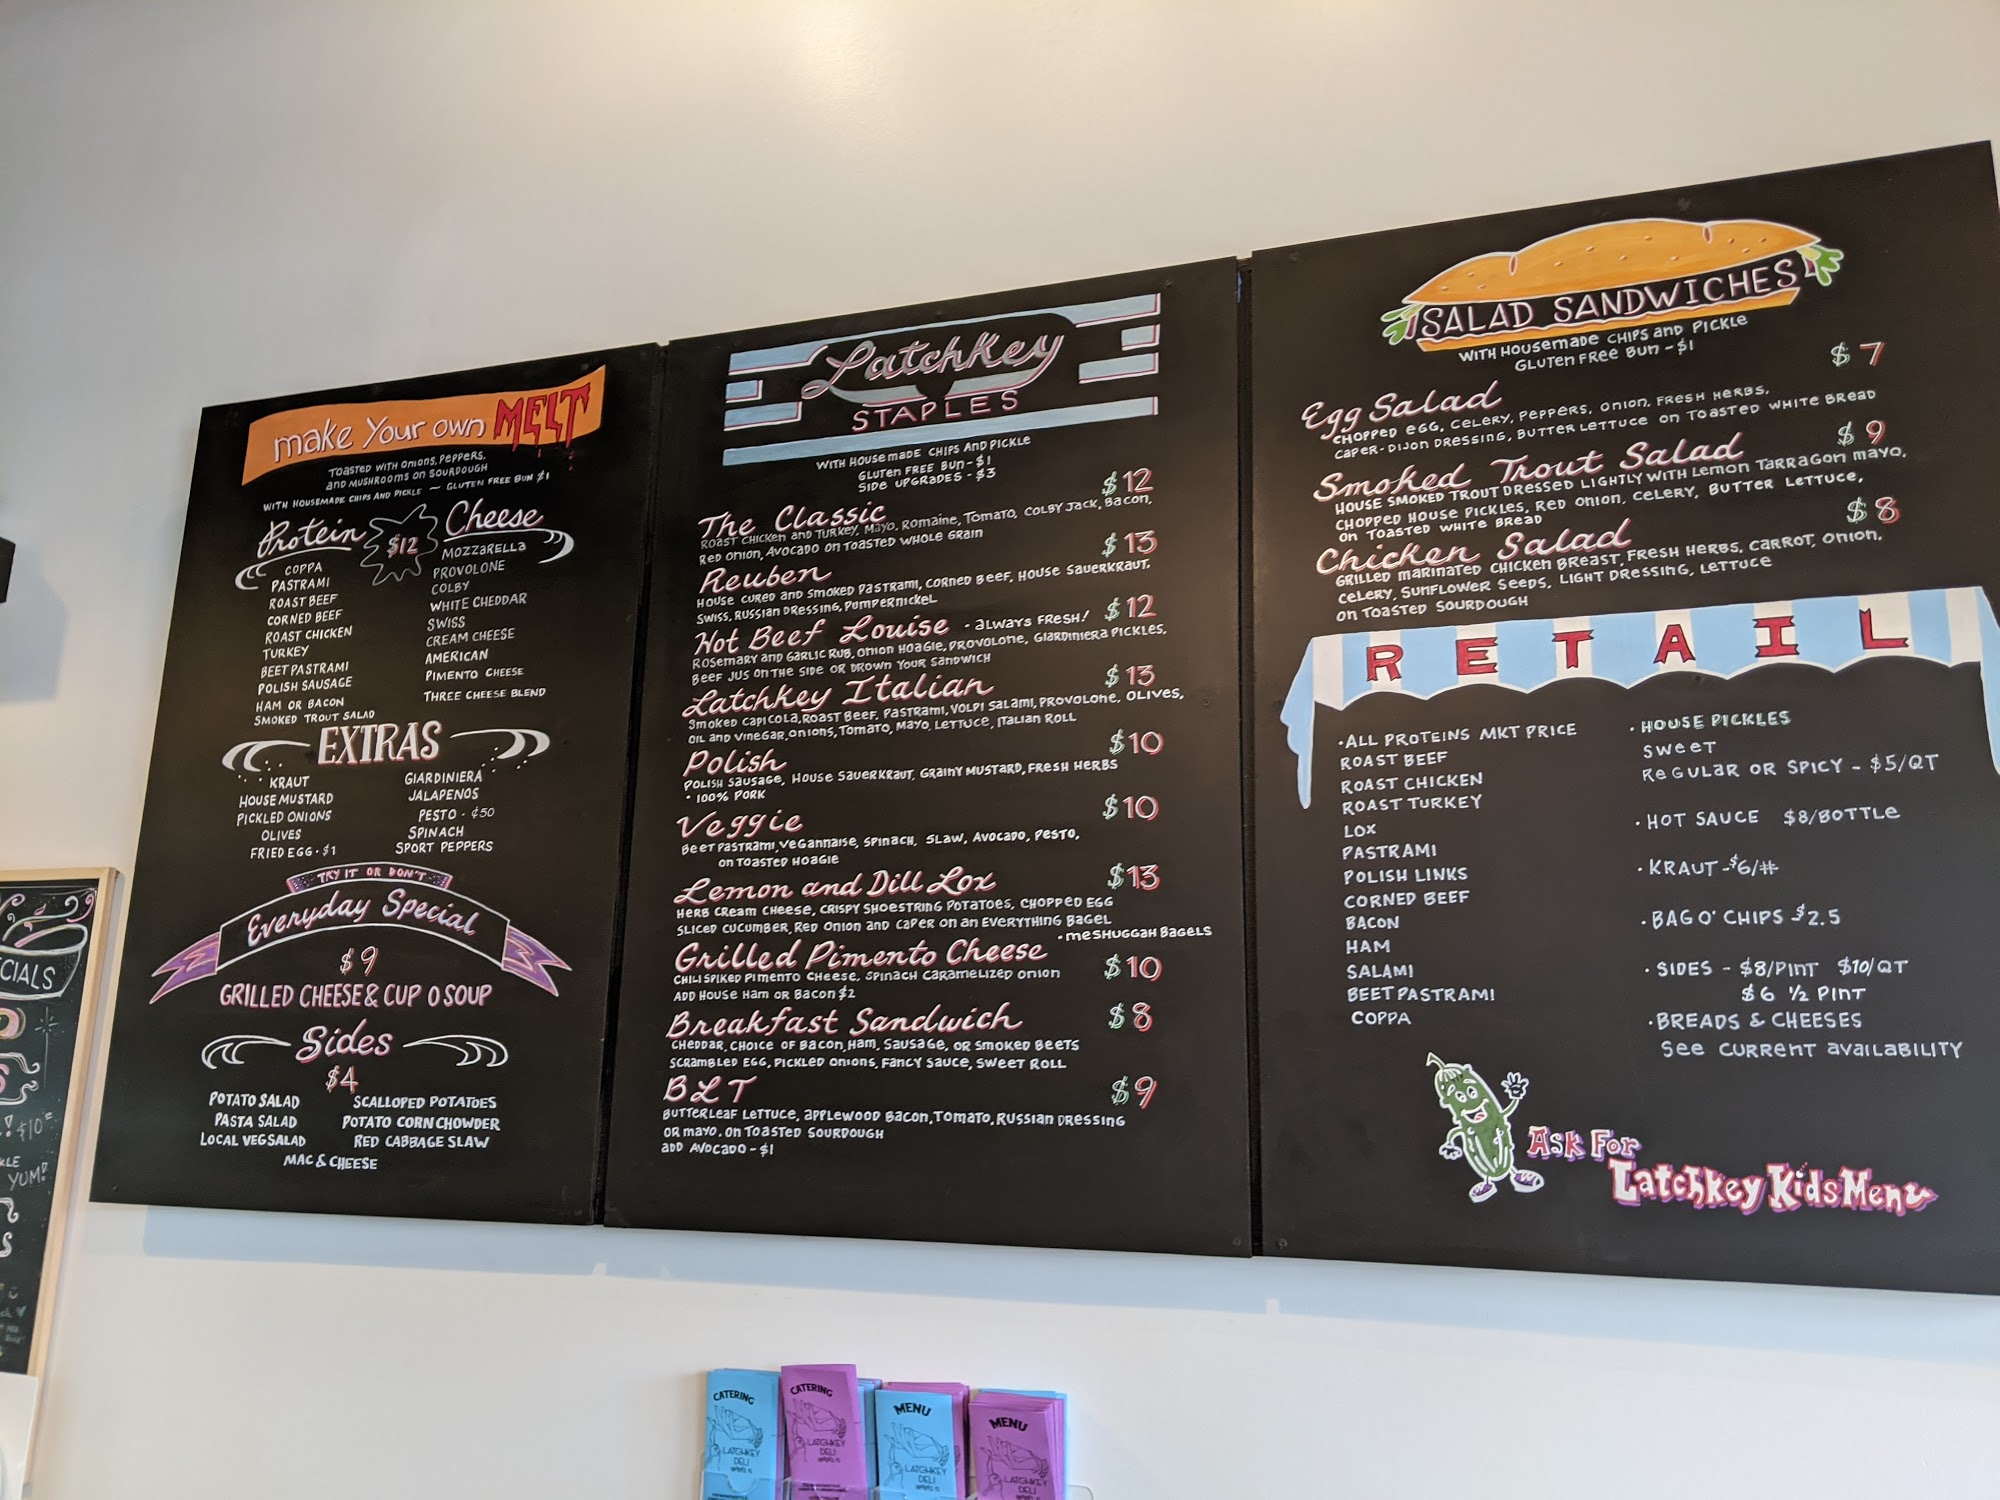 make Your own MELT
TOASTED WITH ONIONS, PEPPERS,
AND MUSHROOMS ON SOURDOUGH
WITH HOUSEMADE CHIPS AND PICKLE ~ GLUTEN FREE BUN $1
Protein
$12
COPPA
PASTRAMI
ROAST BEEF
CORNED BEEF
ROAST CHICKEN
TURKEY
BEET PASTRAMI
POLISH SAUSAGE
HAM OR BACON
SMOKED TROUT SALAD
Cheese
MOZZARELLA
PROVOLONE
COLBY
WHITE CHEDDAR
SWISS
CREAM CHEESE
AMERICAN
PIMENTO CHEESE
THREE CHEESE BLEND
EXTRAS
KRAUT
HOUSE MUSTARD
PICKLED ONIONS
OLIVES
FRIED EGG · $1
GIARDINIERA
JALAPENOS
PESTO · ¢50
SPINACH
SPORT PEPPERS
TRY IT OR DON'T
Everyday Special
$9
GRILLED CHEESE & CUP O SOUP
Sides
$4
POTATO SALAD
PASTA SALAD
LOCAL VEG SALAD
SCALLOPED POTATOES
POTATO CORN CHOWDER
RED CABBAGE SLAW
MAC & CHEESE
Latchkey
STAPLES
WITH HOUSEMADE CHIPS AND PICKLE
GLUTEN FREE BUN - $1
SIDE UPGRADES - $3
The Classic $12
ROAST CHICKEN AND TURKEY, MAYO, ROMAINE, TOMATO, COLBY JACK, BACON,
RED ONION, AVOCADO ON TOASTED WHOLE GRAIN
Reuben $13
HOUSE CURED AND SMOKED PASTRAMI, CORNED BEEF, HOUSE SAUERKRAUT,
SWISS, RUSSIAN DRESSING, PUMPERNICKEL
Hot Beef Louise - ALWAYS FRESH! $12
ROSEMARY AND GARLIC RUB, ONION HOAGIE, PROVOLONE, GIARDINIERA PICKLES,
BEEF JUS ON THE SIDE OR DROWN YOUR SANDWICH
Latchkey Italian $13
SMOKED CAPICOLA, ROAST BEEF, PASTRAMI, VOLPI SALAMI, PROVOLONE, OLIVES,
OIL AND VINEGAR, ONIONS, TOMATO, MAYO, LETTUCE, ITALIAN ROLL
Polish $10
POLISH SAUSAGE, HOUSE SAUERKRAUT, GRAINY MUSTARD, FRESH HERBS
· 100% PORK
Veggie $10
BEET PASTRAMI, VEGANNAISE, SPINACH, SLAW, AVOCADO, PESTO,
ON TOASTED HOAGIE
Lemon and Dill Lox $13
HERB CREAM CHEESE, CRISPY SHOESTRING POTATOES, CHOPPED EGG
SLICED CUCUMBER, RED ONION AND CAPER ON AN EVERYTHING BAGEL
· MESHUGGAH BAGELS
Grilled Pimento Cheese $10
CHILI SPIKED PIMENTO CHEESE, SPINACH CARAMELIZED ONION
ADD HOUSE HAM OR BACON $2
Breakfast Sandwich $8
CHEDDAR, CHOICE OF BACON, HAM, SAUSAGE, OR SMOKED BEETS
SCRAMBLED EGG, PICKLED ONIONS, FANCY SAUCE, SWEET ROLL
BLT $9
BUTTERLEAF LETTUCE, APPLEWOOD BACON, TOMATO, RUSSIAN DRESSING
OR MAYO, ON TOASTED SOURDOUGH
ADD AVOCADO - $1
SALAD SANDWICHES
WITH HOUSEMADE CHIPS AND PICKLE
GLUTEN FREE BUN - $1
Egg Salad $7
CHOPPED EGG, CELERY, PEPPERS, ONION, FRESH HERBS,
CAPER-DIJON DRESSING, BUTTER LETTUCE ON TOASTED WHITE BREAD
Smoked Trout Salad $9
HOUSE SMOKED TROUT DRESSED LIGHTLY WITH LEMON TARRAGON MAYO,
CHOPPED HOUSE PICKLES, RED ONION, CELERY, BUTTER LETTUCE,
ON TOASTED WHITE BREAD
Chicken Salad $8
GRILLED MARINATED CHICKEN BREAST, FRESH HERBS, CARROT, ONION,
CELERY, SUNFLOWER SEEDS, LIGHT DRESSING, LETTUCE
ON TOASTED SOURDOUGH
RETAIL
· ALL PROTEINS MKT PRICE
ROAST BEEF
ROAST CHICKEN
ROAST TURKEY
LOX
PASTRAMI
POLISH LINKS
CORNED BEEF
BACON
HAM
SALAMI
BEET PASTRAMI
COPPA
· HOUSE PICKLES
SWEET
REGULAR OR SPICY - $5/QT
· HOT SAUCE $8/BOTTLE
· KRAUT - $6/#
· BAG O' CHIPS - $2.5
· SIDES - $8/PINT $10/QT
$6 1/2 PINT
· BREADS & CHEESES
SEE CURRENT AVAILABILITY
ASK FOR
Latchkey Kids Menu
CIALS
$10
YUM!
CATERING
LATCHKEY
DELI
CATERING
LATCHKEY
DELI
MENU
LATCHKEY
DELI
MENU
LATCHKEY
DELI